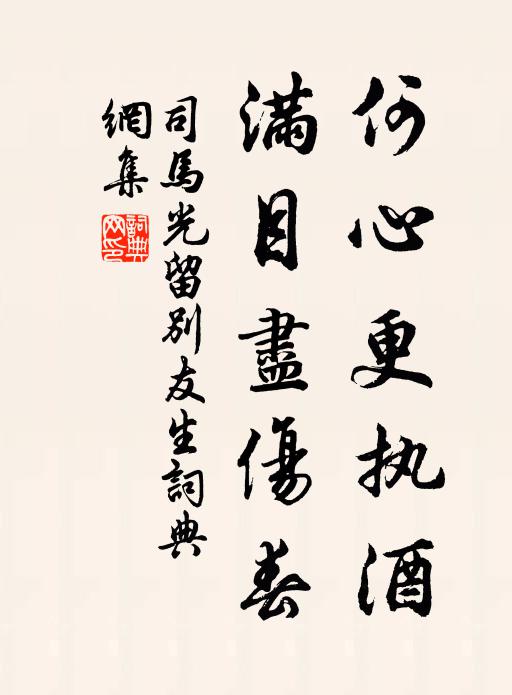 何心更执酒
滿目盡傷春
司馬光留別友生詞典
網集
詞典
网印